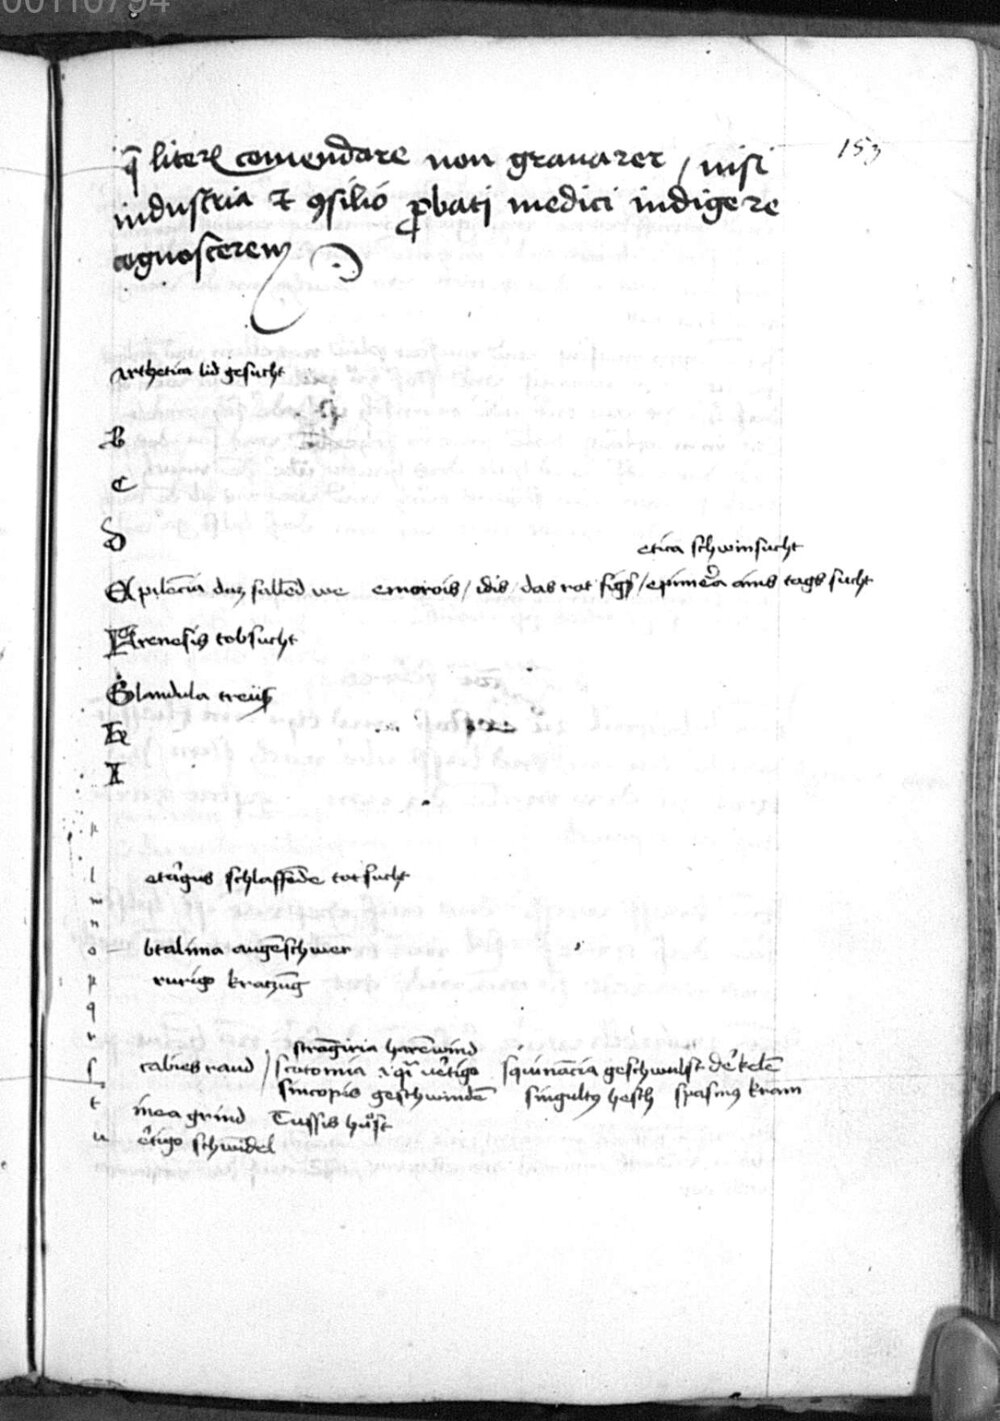 00110794
153
q̄ literꝭ comendare non grauarer / nisi
industria et ꝯsilio ꝓbati medici indigere
cognoscerem
Arthetica lid gesucht
B
C
D
etica schwinsucht
Epilēcia daz fallēd we emorois / idis / das rot / epimera ains tags sucht
Frenesis tobsucht
Glandula
H
I
k
l etargus schlaffende totsucht
m
n
o btalmia augeschwer
p rurigo kratzung
q
r
strāgiria harēwind
s cabies raud / scotomia vertigo squinācia geschwulst der kelē
sincopis geschwindē singultus hesch spasmus kram
t inea grind Tussis hůst
u ertigo schwindel